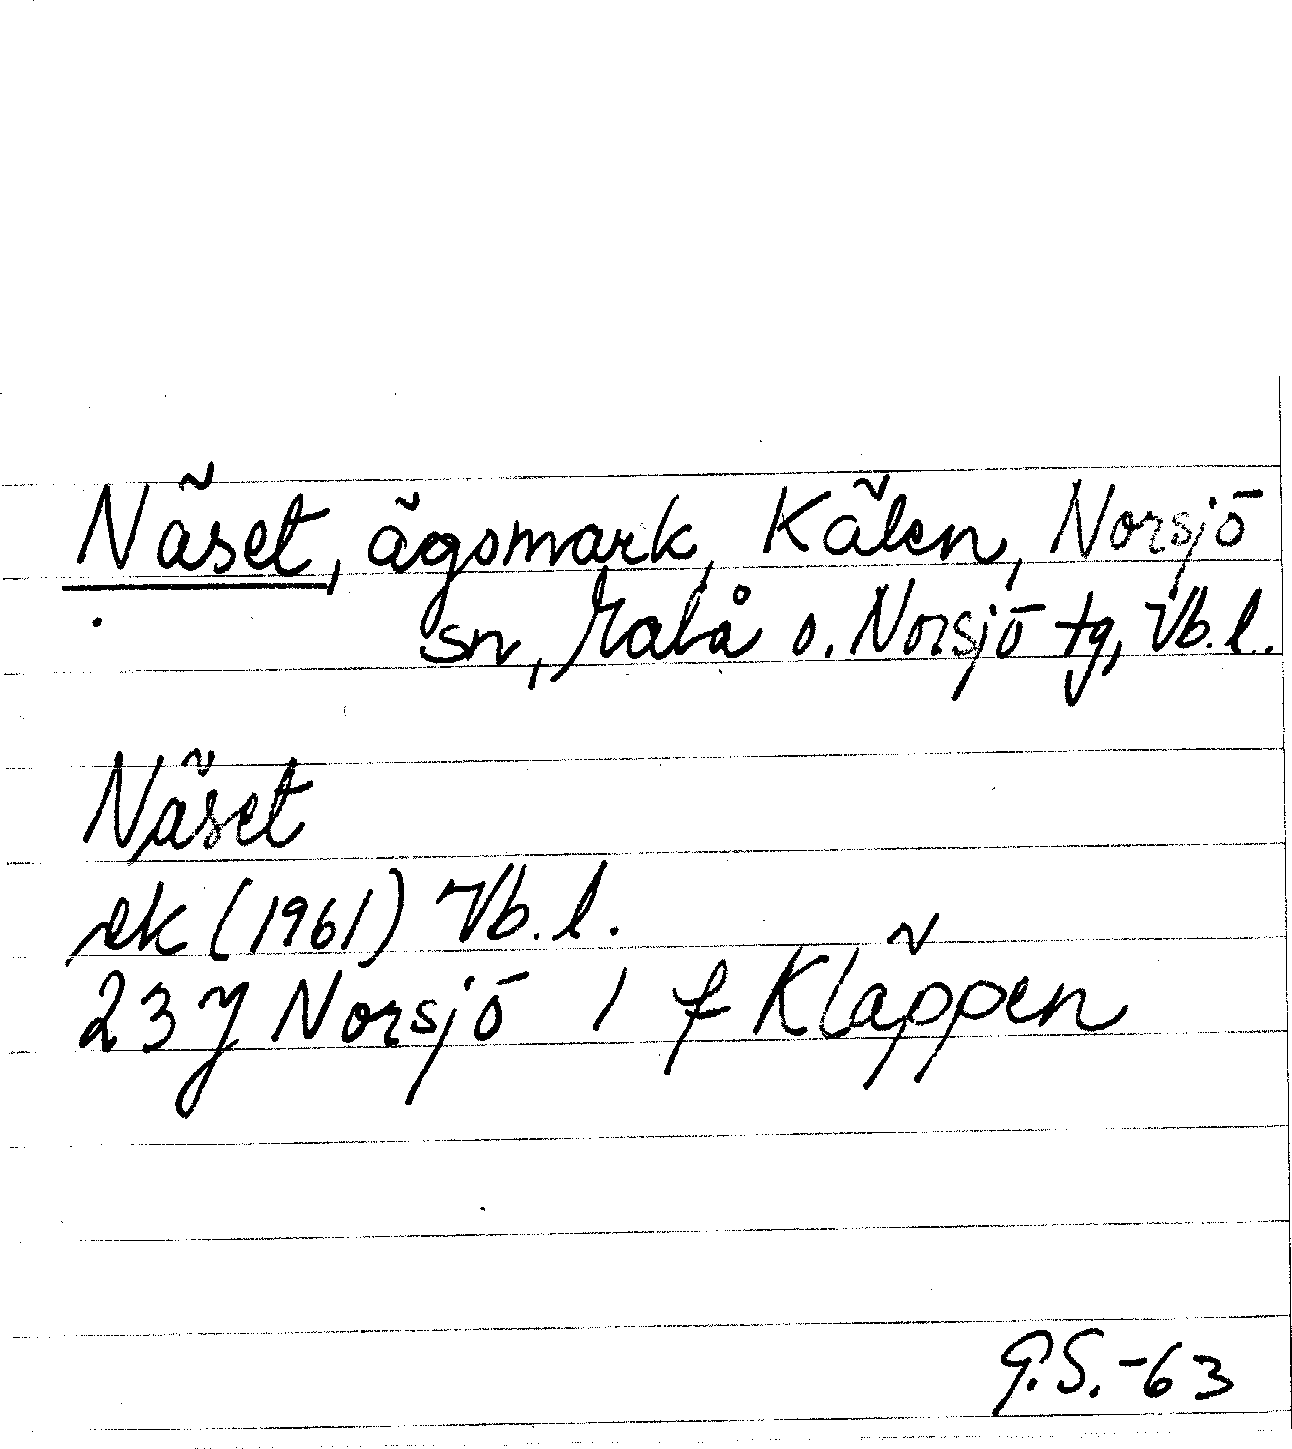 Näset, ägomark, Kälen, Norsjö
sn, Malå o. Norsjö tg, Vb.l.
Näset
ek (1961) Vb.l.
23 J Norsjö 1 f Kläppen
G.S.-63